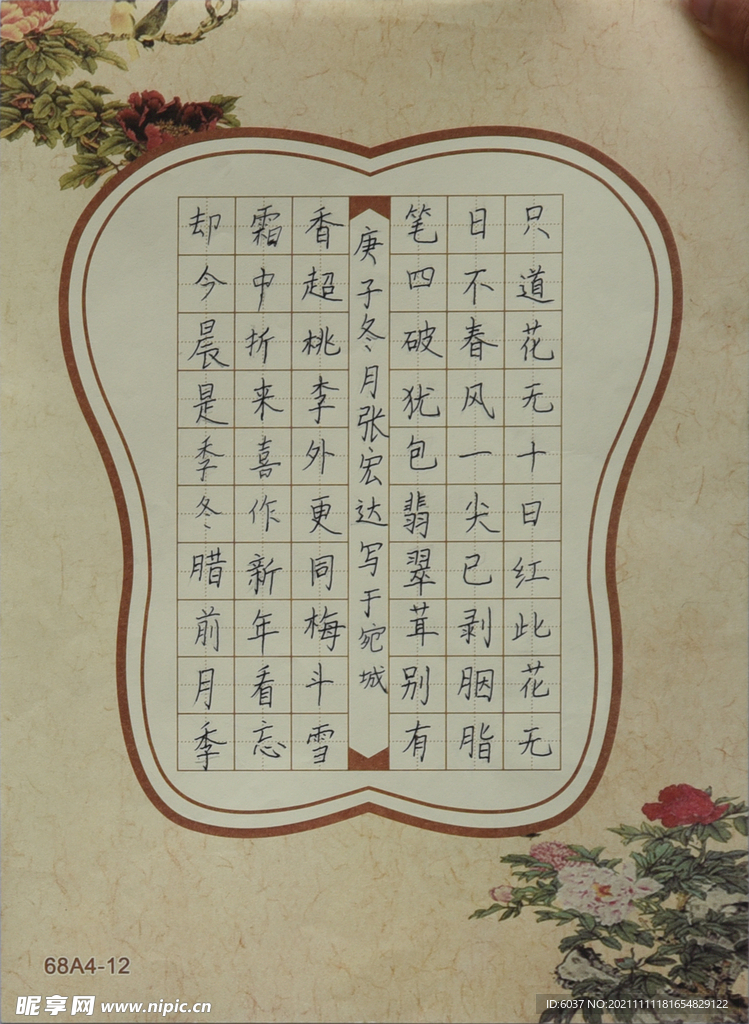 只道花无十日红此花无
日不春风一尖已剥胭脂
笔四破犹包翡翠茸别有
庚子冬月张宏达写于宛城
香超桃李外更同梅斗雪
霜中折来喜作新年看忘
却今晨是季冬腊前月季
68A4-12
昵享网 www.nipic.cn
ID:6037 NO:20211111181654829122